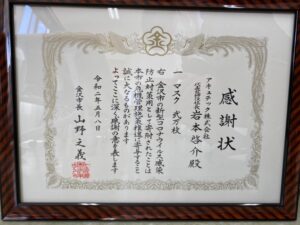 感謝状
アキュテック株式会社
代表取締役社長 岩本啓介殿
一 マスク 弐万枚
右 金沢市の新型コロナウイルス感染
防止対策用として寄附されたことは
本市の危機管理施策推進に寄与すること
誠に大なるものがあります
よってここに深く感謝の意を表します
令和二年五月八日
金沢市長 山野之義